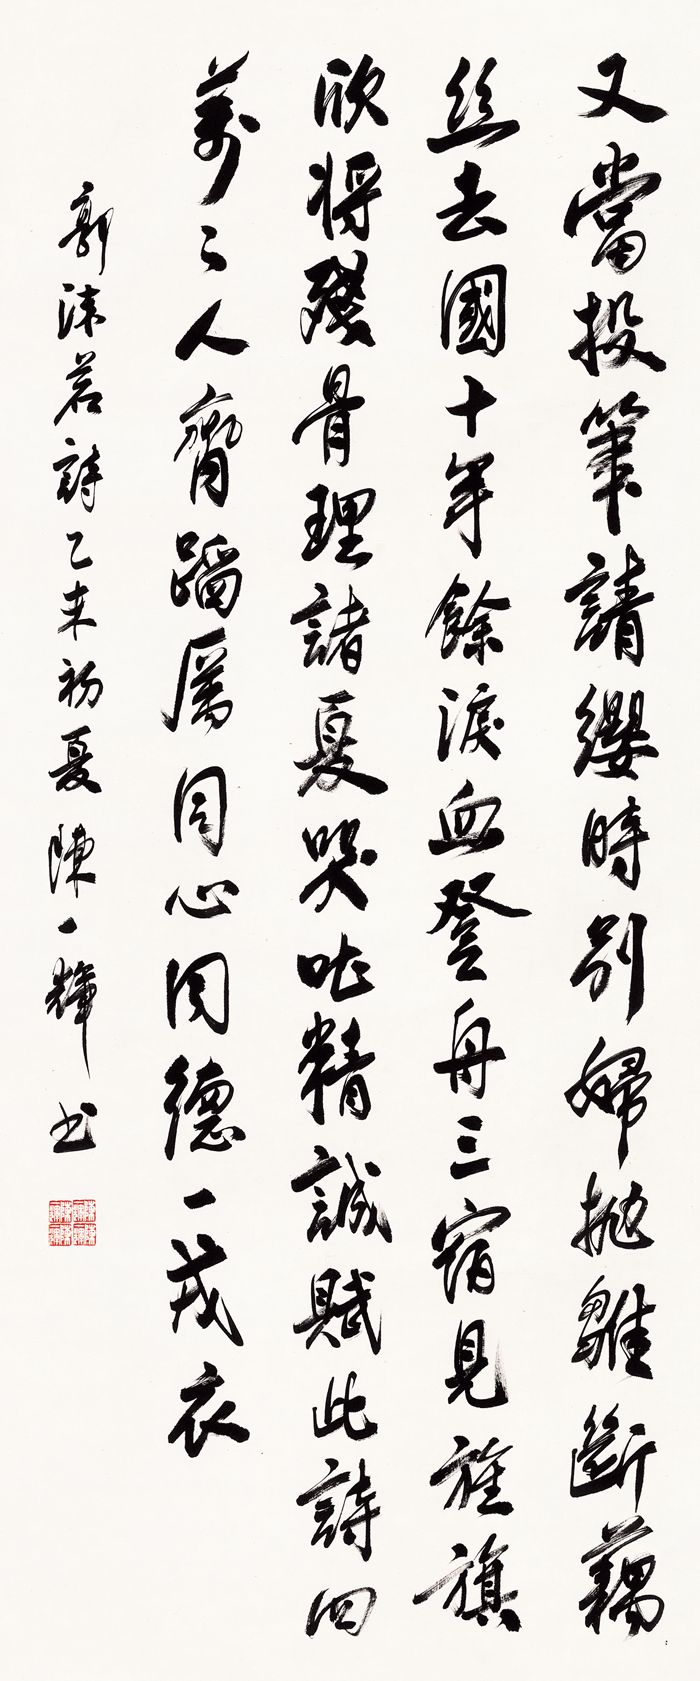 又當投筆請纓時別婦拋雛斷藕
絲去國十年餘淚血登舟三宿見旌旗
欣將殘骨理諸夏哭吐精誠賦此詩四
萬〻人齊蹈厲同心同德一戎衣
郭沫若詩乙未初夏陳一輝书